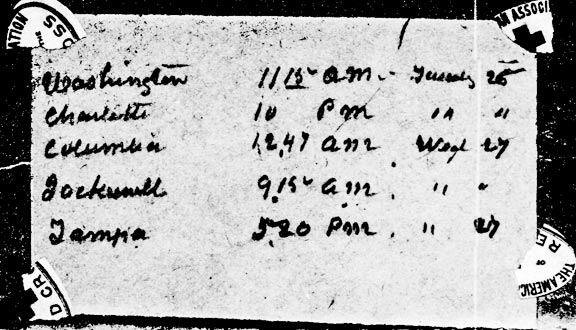 ATION
OSS
AN ASSOCI
Washington 11 15 am. Tuesday 26
Charlotte 10 Pm " "
Columbia 12,47 am Wed 27
Jacksonville 9,15 am. " "
Tampa 5.20 Pm. " 27
D CR
THE AMERIC
R E
OF